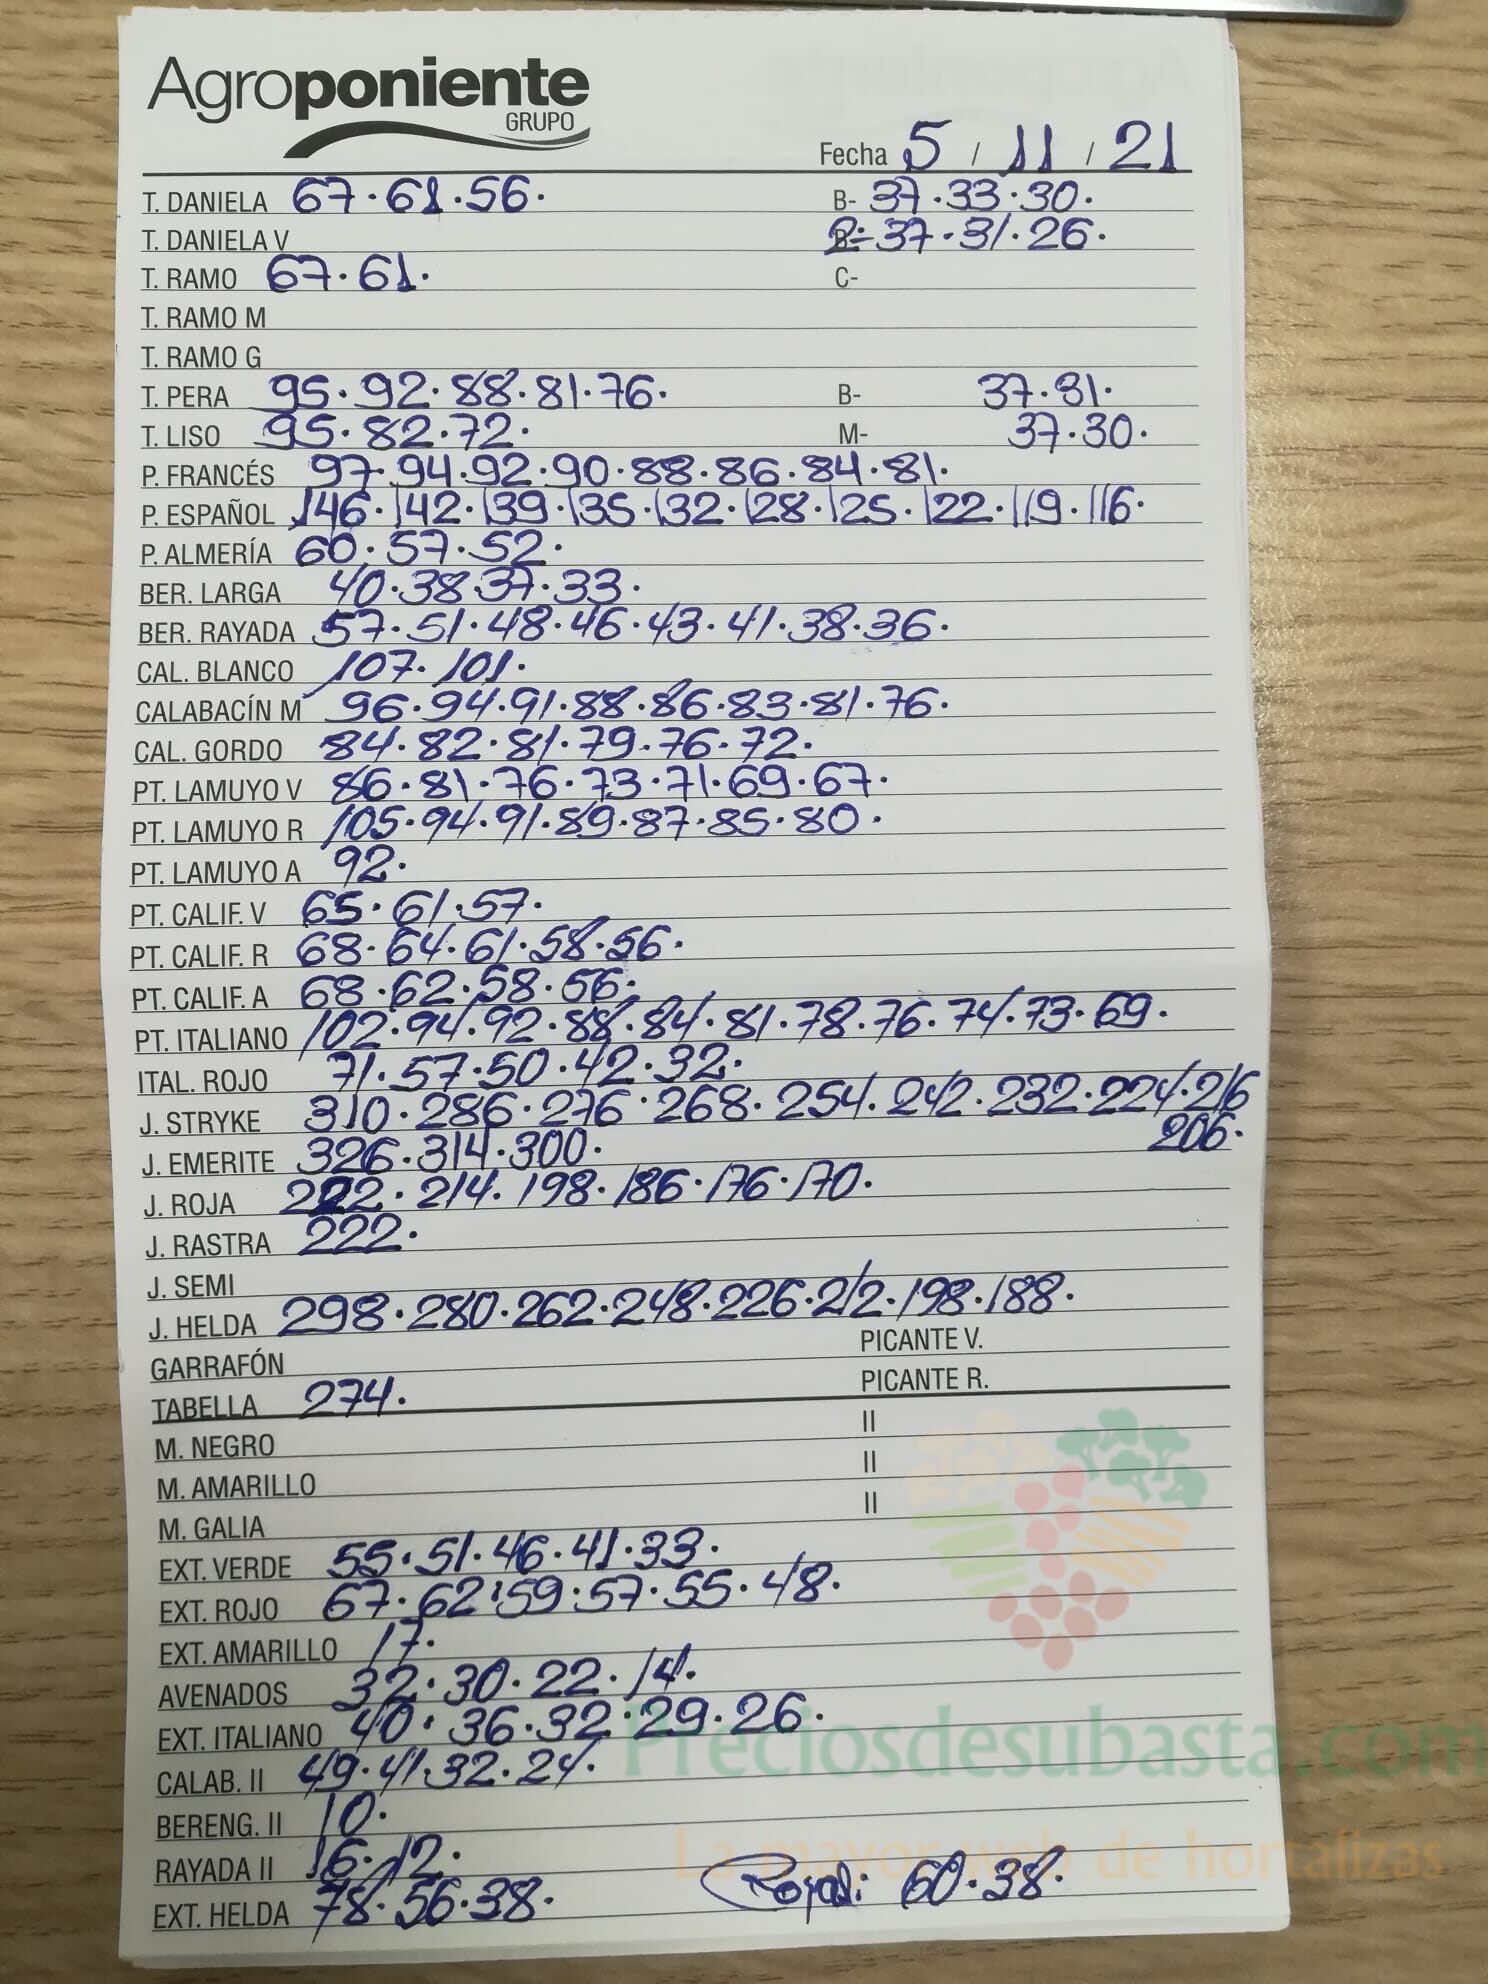 Agroponiente
GRUPO
Fecha 5 / 11 / 21
T. DANIELA 67.61.56. B- 37.33.30.
T. DANIELA V 2- 37.31.26.
T. RAMO 67.61. C-
T. RAMO M
T. RAMO G
T. PERA 95.92.88.81.76. B- 37.31.
T. LISO 95.82.72. M- 37.30.
P. FRANCÉS 97.94.92.90.88.86.84.81.
P. ESPAÑOL 146.142.139.135.132.128.125.122.119.116.
P. ALMERÍA 60.57.52.
BER. LARGA 40.38.37.33.
BER. RAYADA 57.51.48.46.43.41.38.36.
CAL. BLANCO 107.101.
CALABACÍN M 96.94.91.88.86.83.81.76.
CAL. GORDO 84.82.81.79.76.72.
PT. LAMUYO V 86.81.76.73.71.69.67.
PT. LAMUYO R 105.94.91.89.87.85.80.
PT. LAMUYO A 92.
PT. CALIF. V 65.61.57.
PT. CALIF. R 68.64.61.58.56.
PT. CALIF. A 68.62.58.56.
PT. ITALIANO 102.94.92.88.84.81.78.76.74.73.69.
ITAL. ROJO 71.57.50.42.32.
J. STRYKE 310.286.276.268.254.242.232.224.216
206.
J. EMERITE 326.314.300.
J. ROJA 222.214.198.186.176.170.
J. RASTRA 222.
J. SEMI
J. HELDA 298.280.262.248.226.212.198.188.
GARRAFÓN PICANTE V.
TABELLA 274. PICANTE R.
M. NEGRO II
M. AMARILLO II
M. GALIA II
EXT. VERDE 55.51.46.41.33.
EXT. ROJO 67.62.59.57.55.48.
EXT. AMARILLO 17.
AVENADOS 32.30.22.14.
EXT. ITALIANO 40.36.32.29.26.
Preciosdesubasta.com
CALAB. II 49.41.32.24.
BERENG. II 10.
La mayor web de hortalizas
RAYADA II 16.12.
EXT. HELDA 78.56.38. 60.38.